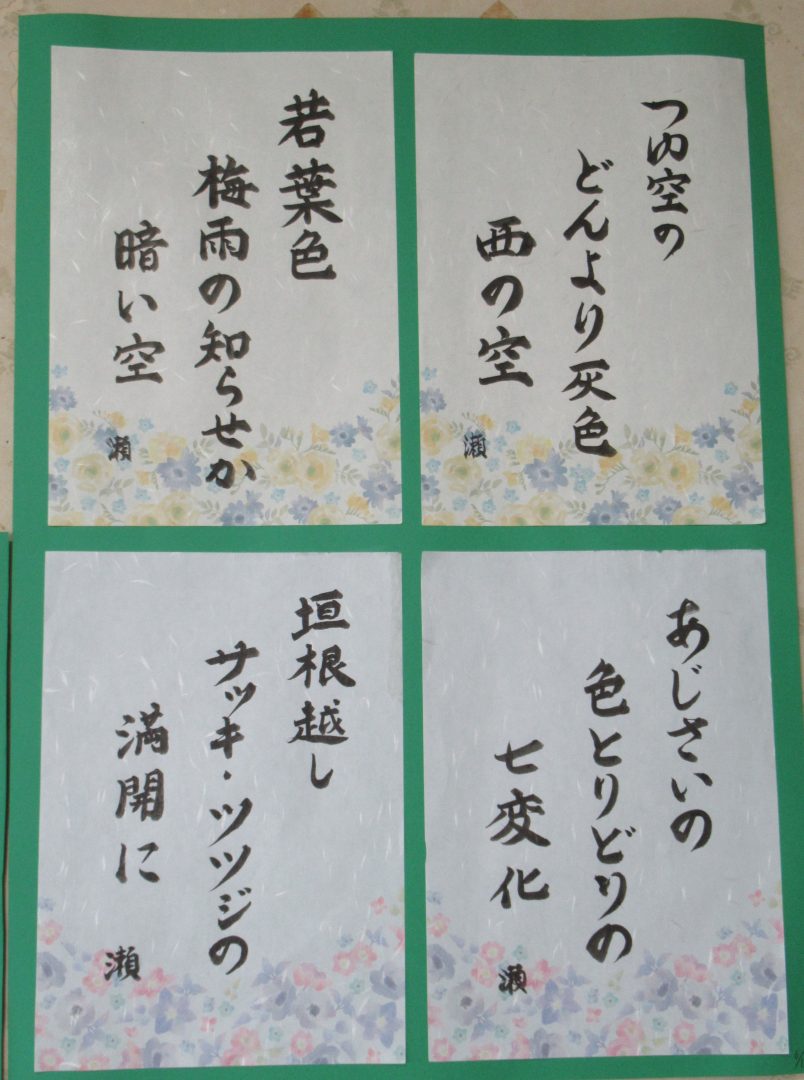 つゆ空の
どんより灰色
西の空
瀬
若葉色
梅雨の知らせか
暗い空
瀬
あじさいの
色とりどりの
七変化
瀬
垣根越し
サツキ・ツツジの
満開に
瀬